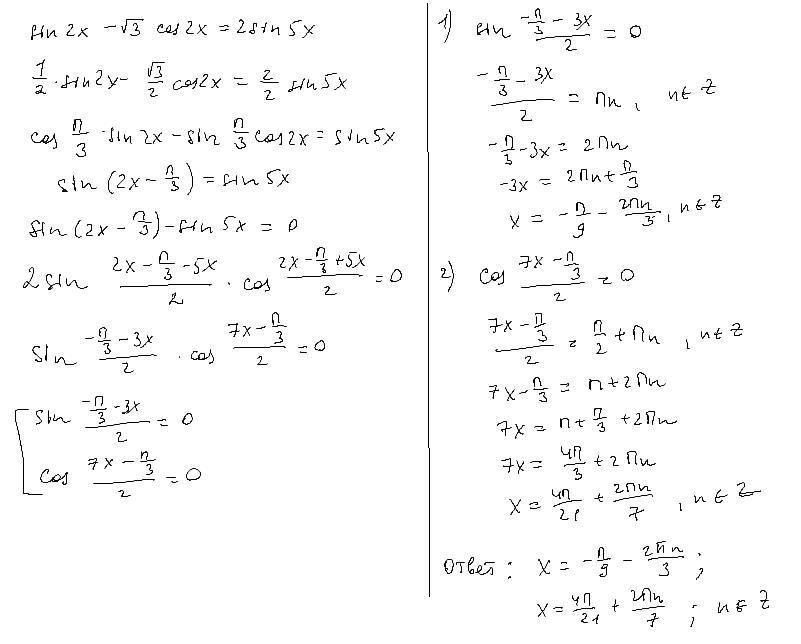 sin 2x - √3 cos 2x = 2 sin 5x
1/2 · sin 2x - √3/2 cos 2x = 2/2 sin 5x
cos п/3 · sin 2x - sin п/3 cos 2x = sin 5x
sin (2x - п/3) = sin 5x
sin (2x - п/3) - sin 5x = 0
2 sin (2x - п/3 - 5x)/2 · cos (2x - п/3 + 5x)/2 = 0
sin (-п/3 - 3x)/2 · cos (7x - п/3)/2 = 0
[ sin (-п/3 - 3x)/2 = 0
cos (7x - п/3)/2 = 0
1) sin (-п/3 - 3x)/2 = 0
(-п/3 - 3x)/2 = пn, n ∈ Z
-п/3 - 3x = 2пn
-3x = 2пn + п/3
x = -п/9 - 2пn/3, n ∈ Z
2) cos (7x - п/3)/2 = 0
(7x - п/3)/2 = п/2 + пn, n ∈ Z
7x - п/3 = п + 2пn
7x = п + п/3 + 2пn
7x = 4п/3 + 2пn
x = 4п/21 + 2пn/7, n ∈ Z
Ответ: x = -п/9 - 2пn/3;
x = 4п/21 + 2пn/7; n ∈ Z